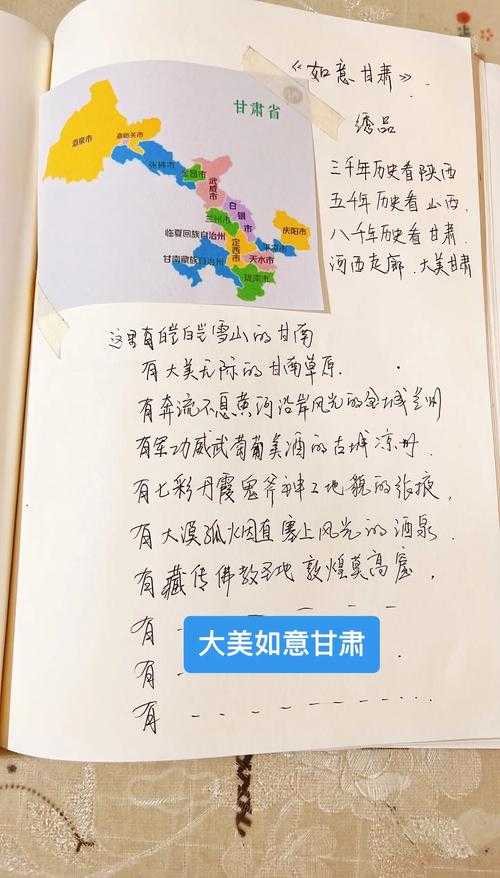 《如意甘肃》
绣品
三千年历史看陕西
五千年历史看山西.
八千年历史看甘肃.
河西走廊.大美甘肃
甘肃省
酒泉市
嘉峪关市
张掖市
金昌市
武威市
白银市
兰州市
临夏回族自治州
定西市
庆阳市
平凉市
甘南藏族自治州
天水市
陇南市
这里有白皑白皑雪山的甘南
有大美无际的甘南草原.
有奔流不息黄河沿岸风光的金城兰州
有军功威武葡萄美酒的古城凉州.
有七彩丹霞鬼斧神工地貌的张掖,
有大漠孤烟直塞上风光的酒泉.
有藏传佛教圣地敦煌莫高窟,
有
大美如意甘肃
有
有